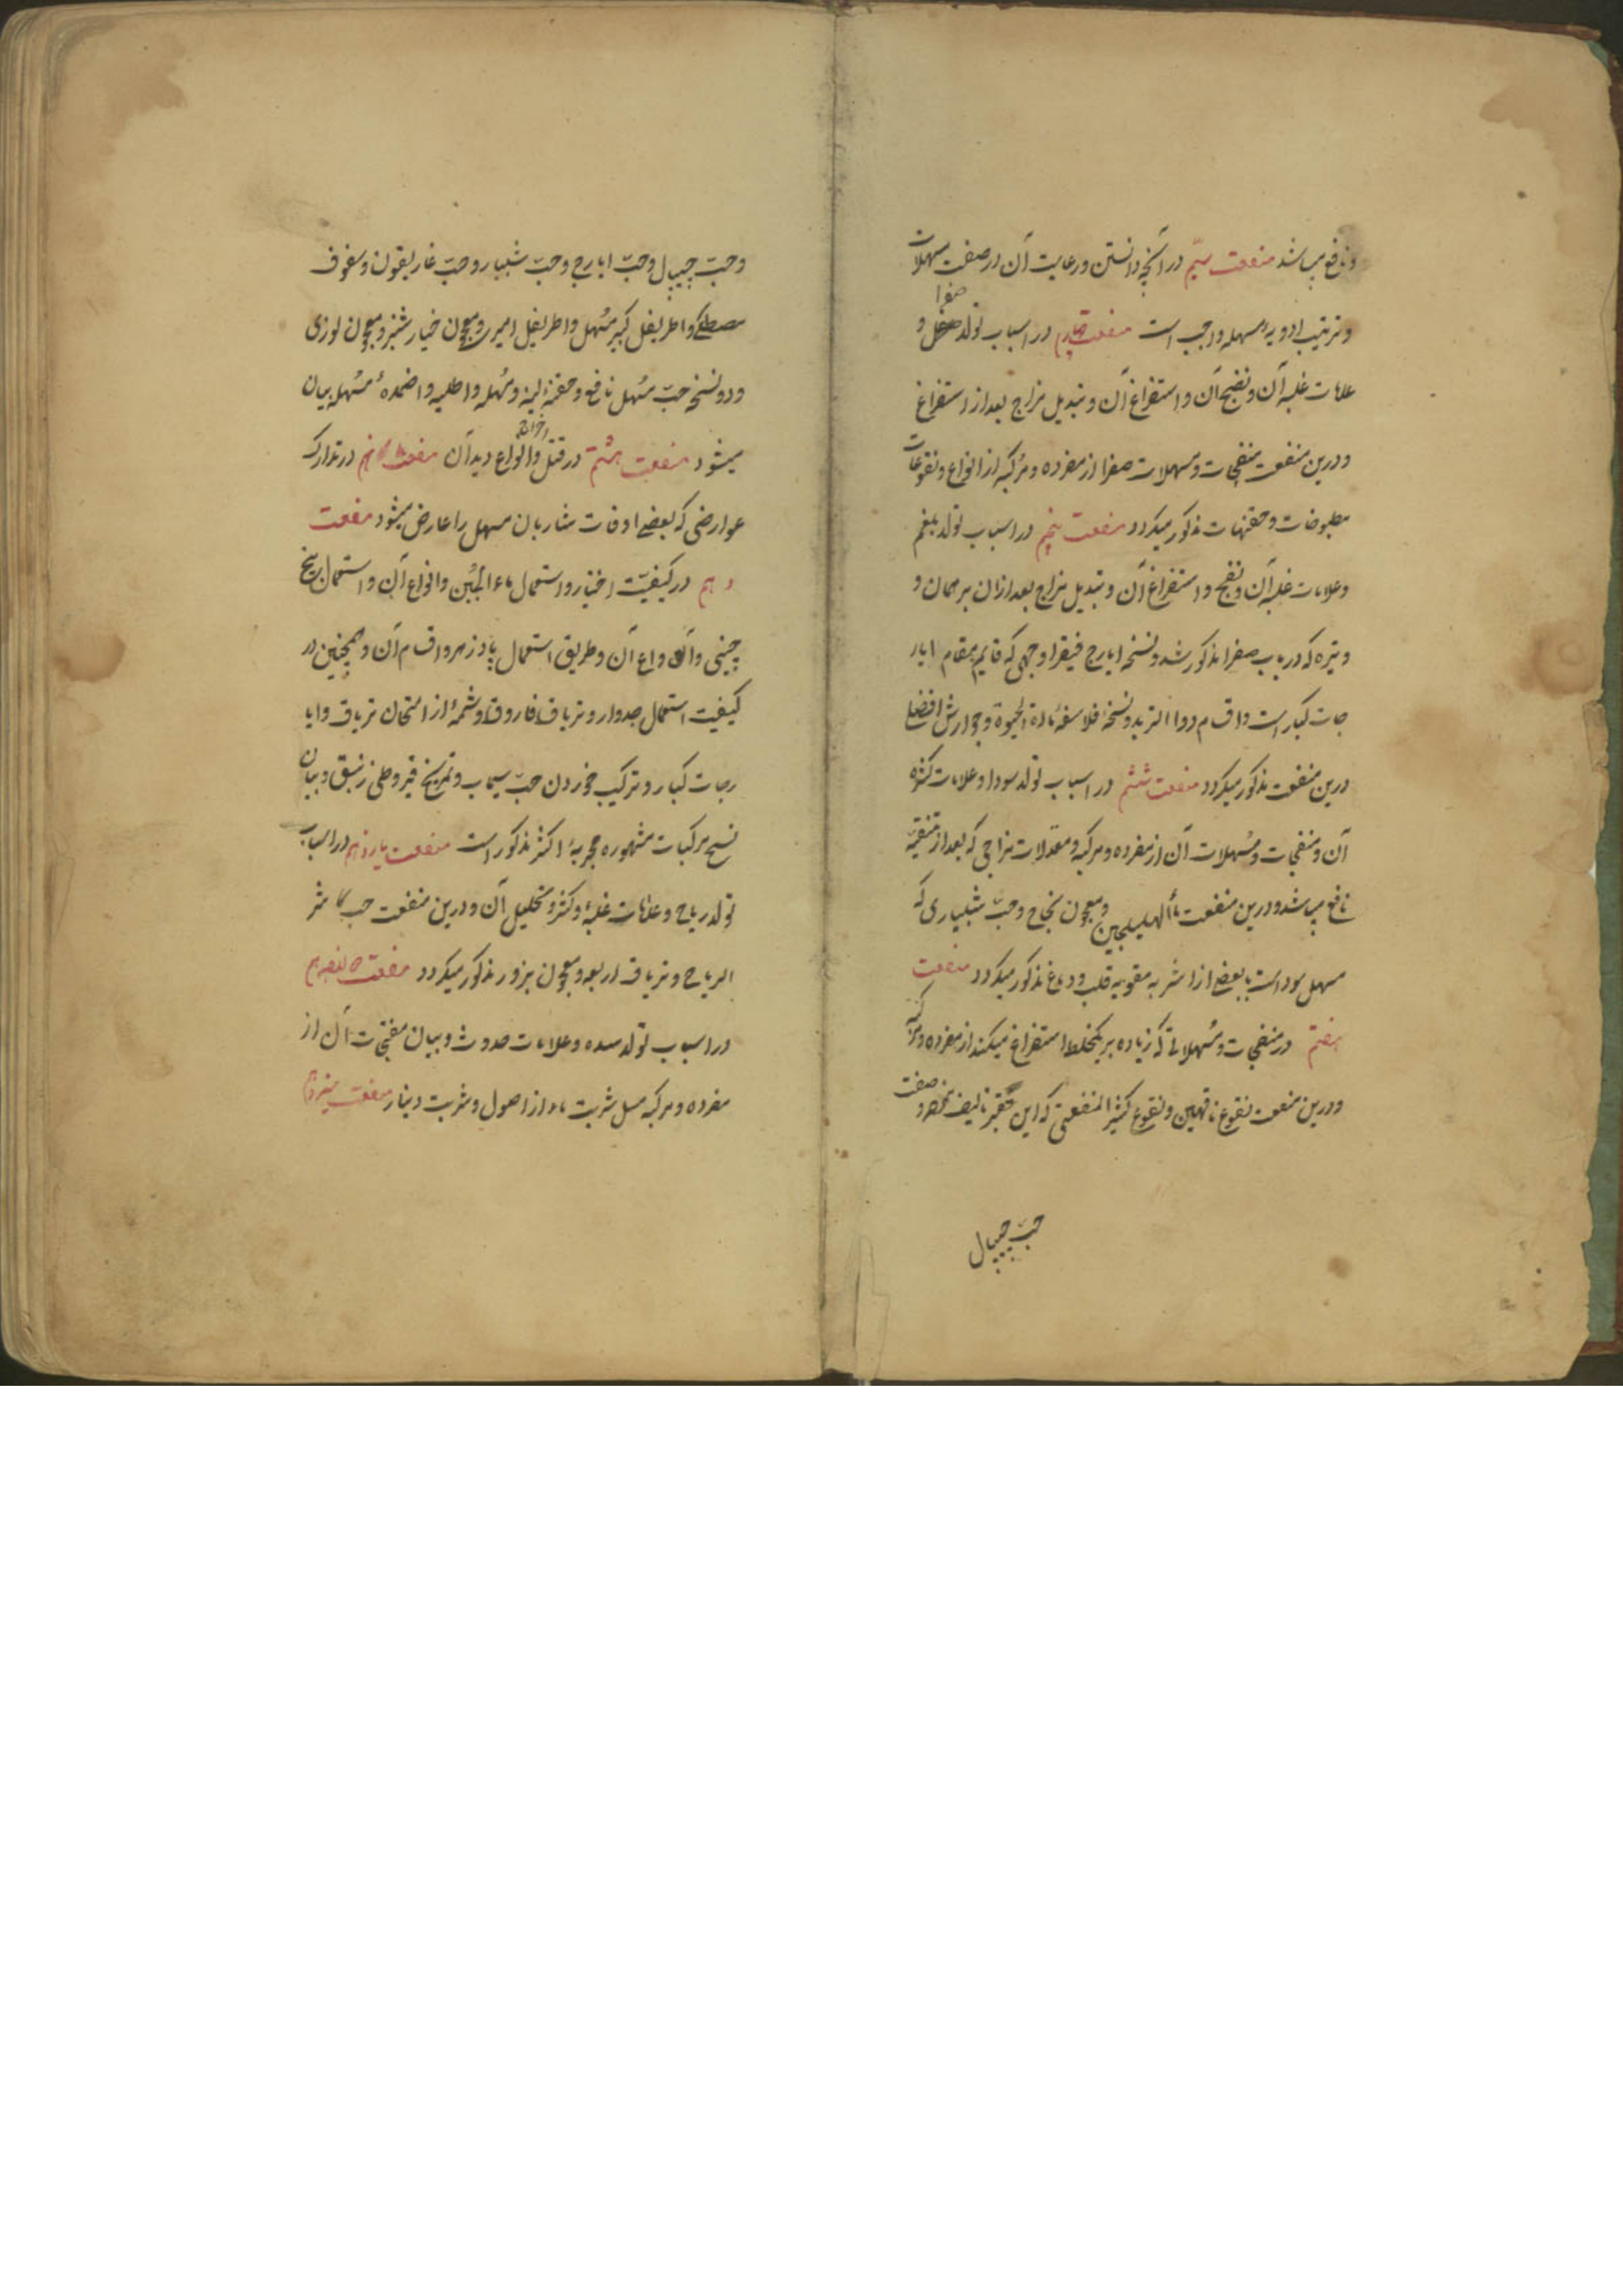 و نافع میباشد منفعت سیم در آنچه دانستن و رعایت آن در صفت مسهلات
و ترتیب ادویه مسهله واجب است منفعت چهارم در اسباب تولد صفرا و
علامات غلبه آن و نضج آن و استفراغ آن و تبدیل مزاج بعد از استفراغ
و درین منفعت منضجات و مسهلات صفرا از مفرده و مرکبه از انواع و نقوعات
مطبوخات و حقنهات مذکور میکردد منفعت پنجم در اسباب تولد بلغم
و علامات غلبه آن و نضج و استفراغ آن و تبدیل مزاج بعد ازان بر همان و
وتیره که در باب صفرا مذکور شد و نسخه ایارج فیقرا و جهی که قایم مقام ایار
جات کبار است و اقسام دواء التربد و نسخه فلاسفه مادة الحیوة و جوارش
درین منفعت مذکور میکردد منفعت ششم در اسباب تولد سودا و علامات کثرة
آن و منضجات و مسهلات آن از مفرده و مرکبه و معدلات مزاجی که بعد از تنقیه
نافع میباشد و درین منفعت و معجون نجاح و حب شبیاری که
مسهل سوداست با بعضی از اشربه مقویه قلب و دماغ مذکور میکردد منفعت
هفتم در منضجات و مسهلاتی که زیاده بر یکخلط استفراغ میکند از مفرده و مرکبه
و درین منفعت نقوع ناقهین و نقوع کثیر المنفعتی که این حقیر تالیف نموده و صفت
حب جیپال
و حب جیپال و حب ایارج و حب شبیار و حب غاریقون و سفوف
مصطکی و اطریفل کبیر مسهل و اطریفل و معجون خیارشنبر و معجون لوزی
و دو نسخه حب مسهل نافع و حقنه لینه و مسهله و اطلیه و اضمدهٔ مسهله بیان
میشود منفعت هشتم در قتل و اخراج انواع دیدان منفعت نهم در تدارک
عوارضی که بعضی اوقات شاربان مسهل را عارض میشود منفعت
دهم در کیفیت اختیار و استعمال ماء الجبن و انواع آن و استعمال بیخ
چینی و انواع آن و طریق استعمال پادزهر و اقسام آن و همچنین در
کیفیت استعمال جدوار و تریاق فاروق و شمهٔ از امتحان تریاق و ایا
رجات کبار و ترکیب خوردن حب سیماب و تمریخ قیروطی زیبق و بیان
نسخ مرکبات مشهوره مجربهٔ اکثر مذکور است منفعت یازدهم در اسباب
تولد ریاح و علامات غلبهٔ و کثرة و تحلیل آن و درین منفعت حب کاسر
الریاح و تریاق اربعه و معجون بزور مذکور میکردد منفعت دوازدهم
در اسباب تولد سده و علامات حدوث و بیان مفتحات آن از
مفرده و مرکبه مثل شربت ماء از اصول و شربت دینار منفعت سیزدهم